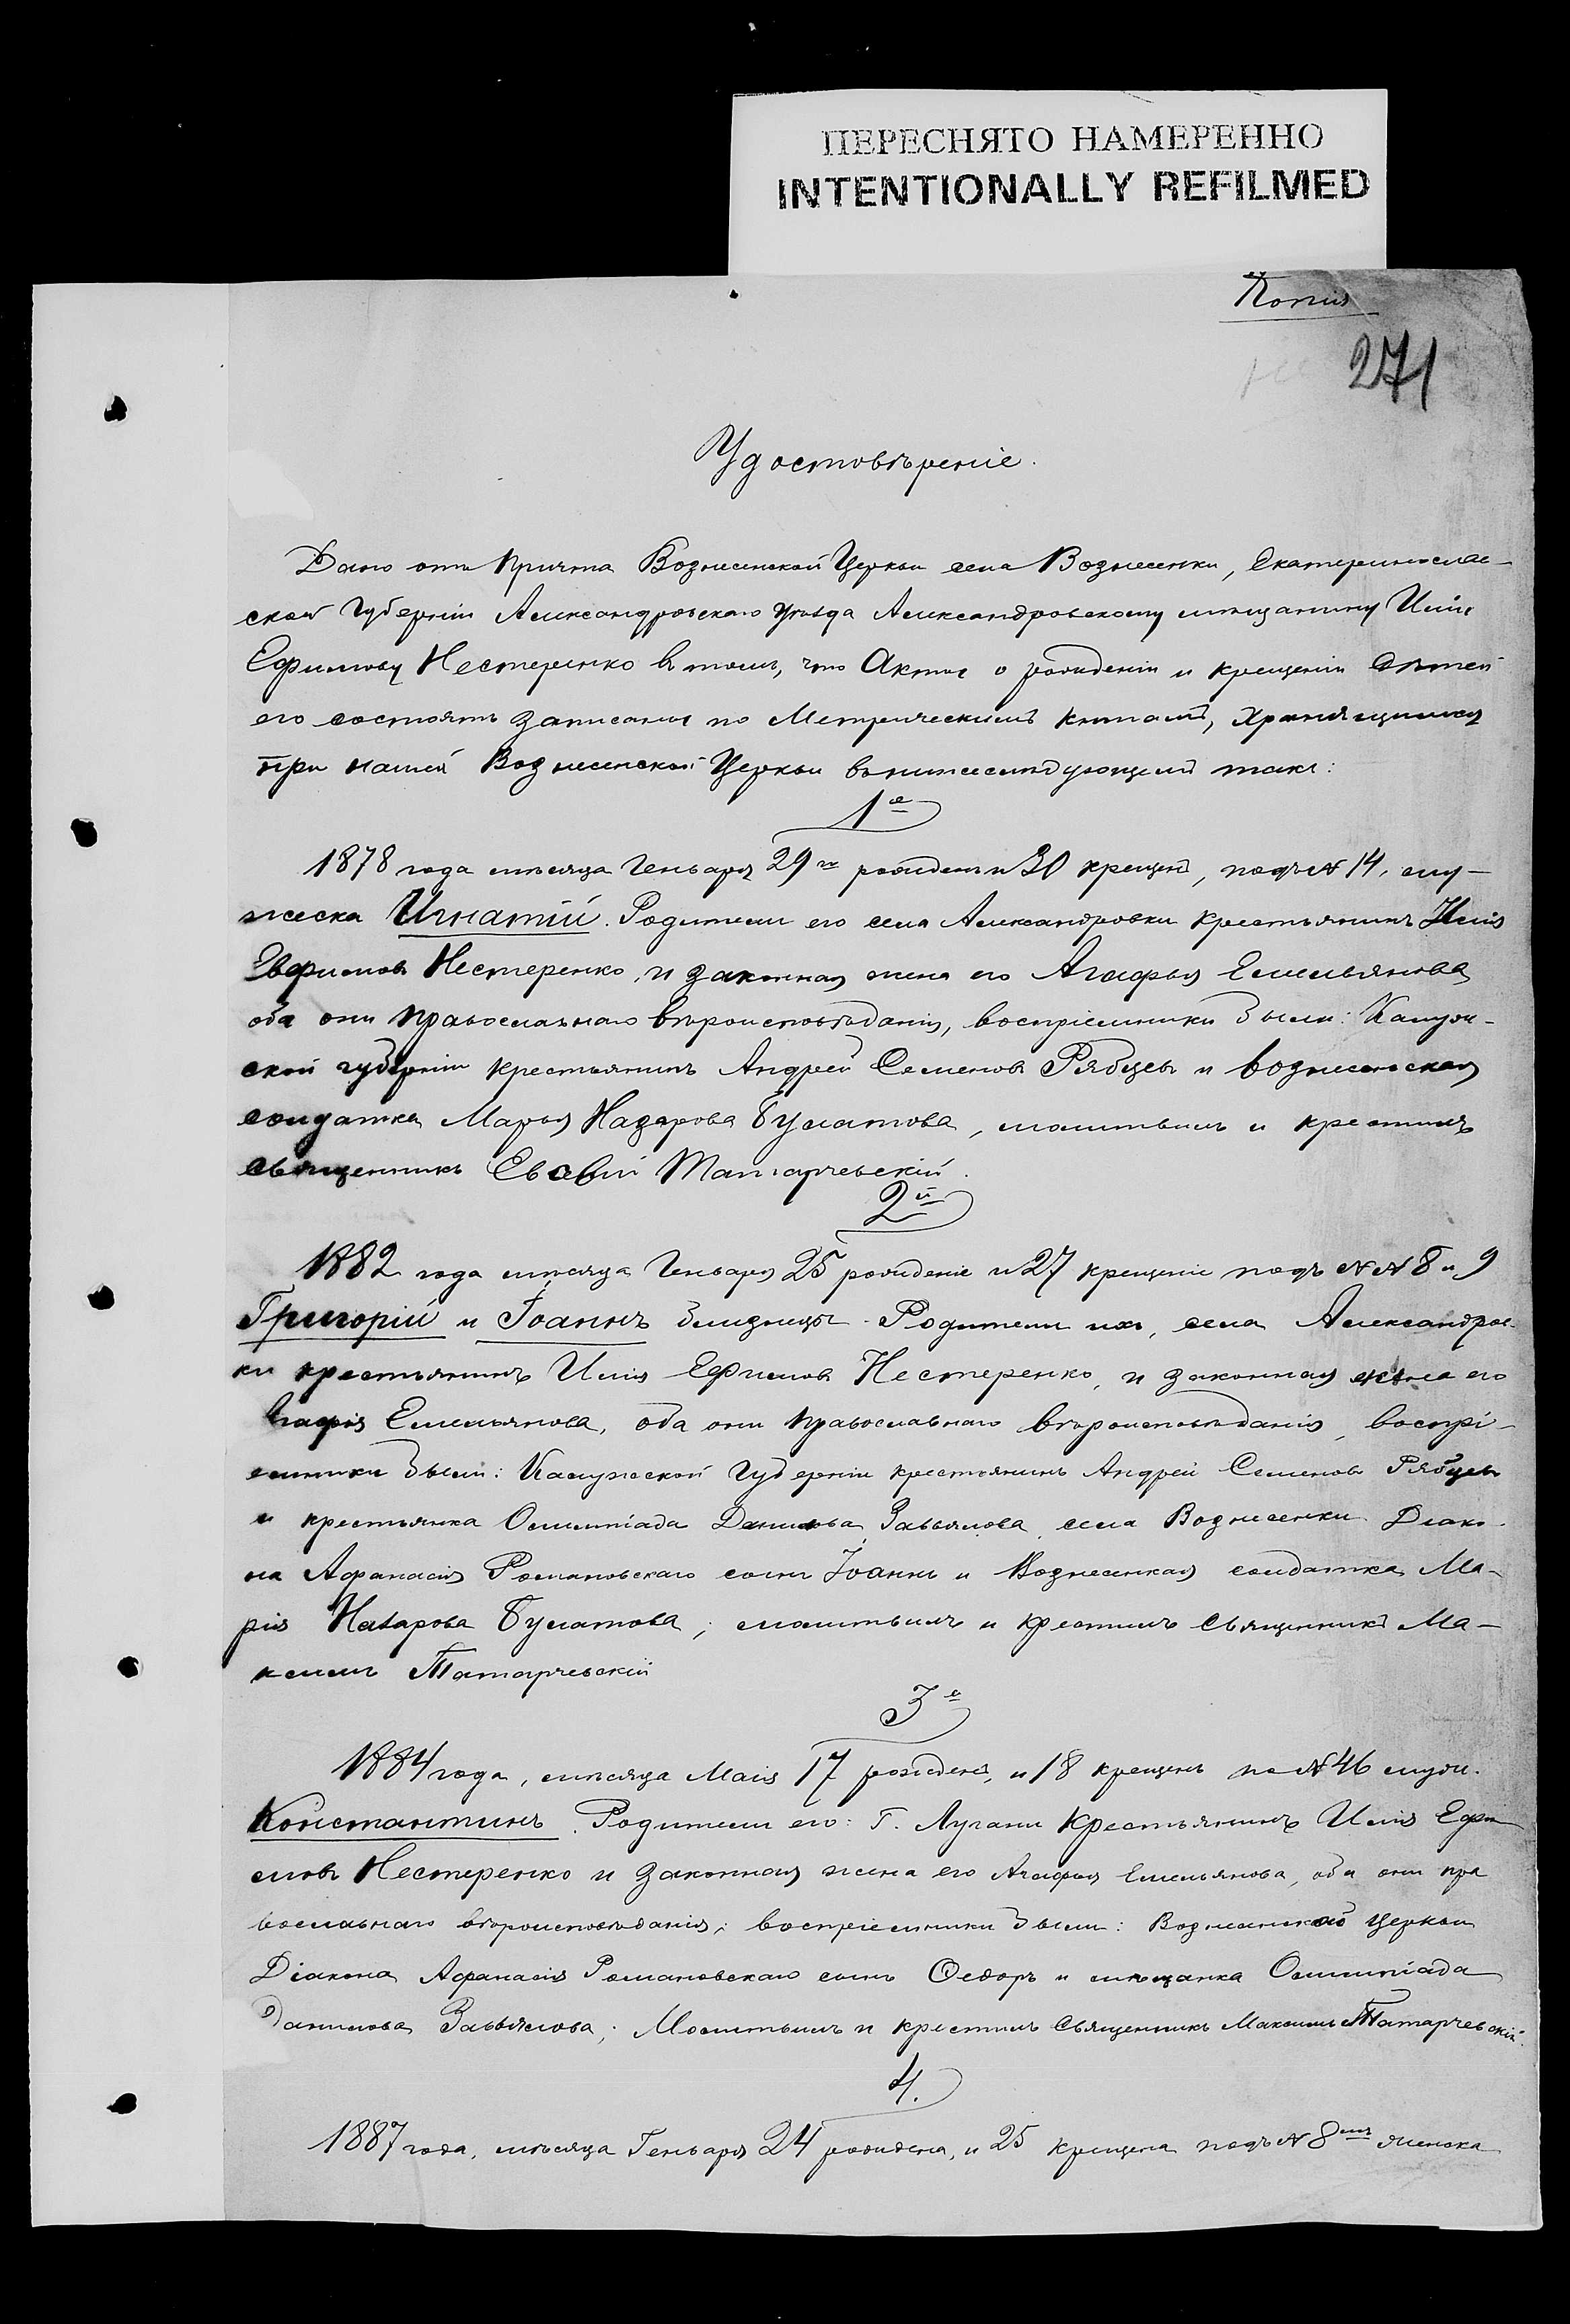 ПЕРЕСНЯТО НАМЕРЕННО
INTENTIONALLY REFILMED
Копия
271
Удостовѣреніе.
Дано отъ Причта Вознесенской Церкви села Вознесенки, Екатеринослав-
ской Губерніи Александровскаго Уѣзда Александровскому мѣщанину Иліи
Ефимову Нестеренко въ томъ, что Акты о рожденіи и крещеніи дѣтей
его состоятъ записаны по Метрическимъ книгамъ, хранящимся
при нашей Вознесенской Церкви въ нижеслѣдующемъ такъ:
1е
1878 года мѣсяца Генваря 29го рожденъ и 30 крещенъ, подъ № 14, му-
жеска Игнатій. Родители его села Александровки крестьянинъ Илія
Евфимовъ Нестеренко, и законная жена его Агафья Емельянова
оба они православнаго вѣроисповѣданія, воспріемники были: Калуж-
ской губерніи крестьянинъ Андрей Семеновъ Рябцевъ и вознесенская
солдатка Марья Назарова Булатова, молитвилъ и крестилъ
священникъ Евсевій Татарчевскій.
2й
1882 года мѣсяца Генваря 25 рожденіе и 27 крещеніе подъ №№ 8 и 9
Григорій и Іоаннъ близнецы. Родители ихъ, села Александров-
ки крестьянинъ Илія Ефимовъ Нестеренко, и законная жена его
Агафія Емельянова, оба они православнаго вѣроисповѣданія, воспрі-
емники были: Калужской Губерніи крестьянинъ Андрей Семеновъ Рябцевъ
и крестьянка Олимпіада Данилова Завьялова, села Вознесенки Діако-
на Афанасія Романовскаго сынъ Іоаннъ и Вознесенкая солдатка Ма-
рія Назарова Булатова; молитвилъ и крестилъ священникъ Ма-
ксимъ Татарчевскій
3е
1884 года, мѣсяца Маія 17 рожденъ, и 18 крещенъ по № 46 мужи.
Константинъ. Родители его: Г. Лугани Крестьянинъ Илія Ефи
мовъ Нестеренко и законная жена его Агафья Емельянова, оба они пра
вославнаго вѣроисповѣданія; воспріемники были: Вознесенской церкви
Діакона Афанасія Романовскаго сынъ Ѳедоръ и мѣщанка Олимпіада
Данилова Завьялова; Молитвилъ и крестилъ Священникъ Максимъ Татарчевскій.
4.
1887 года, мѣсяца Генваря 24 рождена, и 25 крещена подъ № 8мъ женска